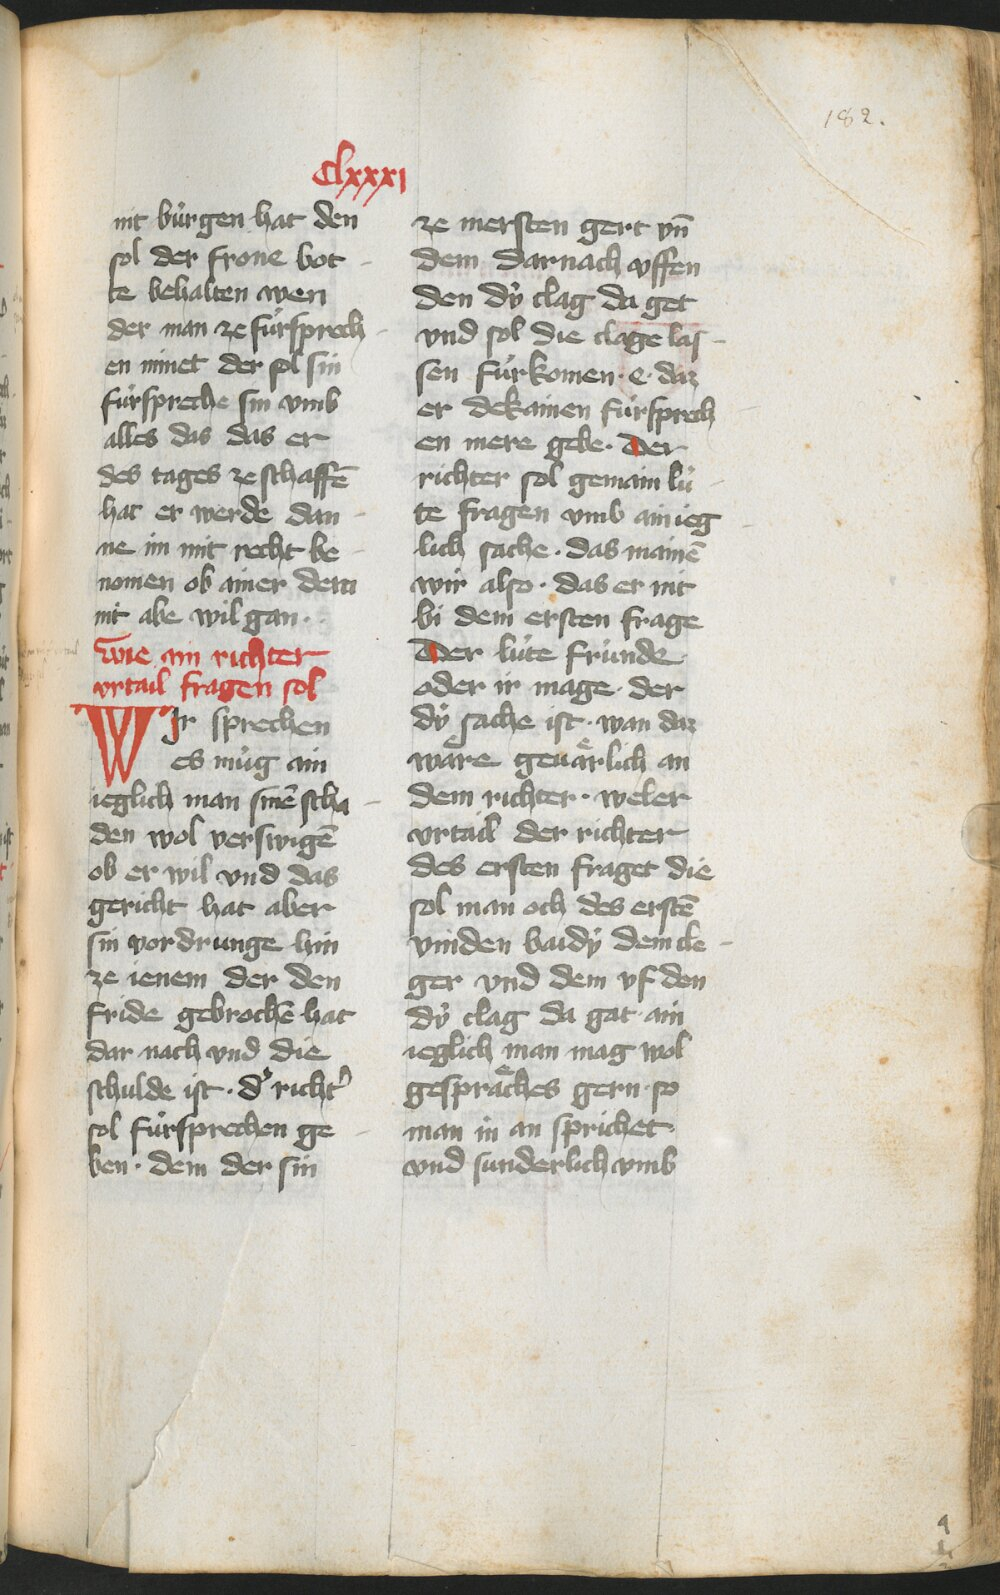 182.
Clxxxi
nit bürgen hat den
sol der frone bot
te behalten wen
der man ze fürsprech
en nimet der sol sin
fürspreche sin vmb
alles das das er
des tages ze schaffē
hat er werde dan
ne im mit recht be
nomen ob ainer dem
nit abe wil gan ·
wie ain richter
vrtail fragen sol
WIr sprechen
es müg ain
ieglich man sinē scha
den wol verswigē
ob er wil vnd das
gericht hat aber
sin vordrunge hin
ze ienem der den
fride gebrochē hat
dar nach vnd die
schulde ist · dˢ richtˢ
sol fürsprechen ge
ben · dem der sin
ze mersten gert vn̄
dem darnach vffen
den dÿ clag da get
vnd sol die clage las
sen fürkomen · e · daz
er dekainen fürsprech
en mere gebe · Der
richter sol gemain lü
te fragen vmb ain ieg
lich sache · das mainē
wir also · das er nit
bi dem ersten frage
Der lüte fründe
oder ir mage · der
dÿ sache ist · wan daz
waͤre geuaͤrlich an
dem richter · weler
vrtail der richter
des ersten fraget die
sol man och des erstē
vinden baidÿ dem cle
ger vnd dem vf den
dÿ clag da gat · ain
ieglich man mag wol
gespraͤches gern · so
man in an sprichet
vnd sunderlich vmb